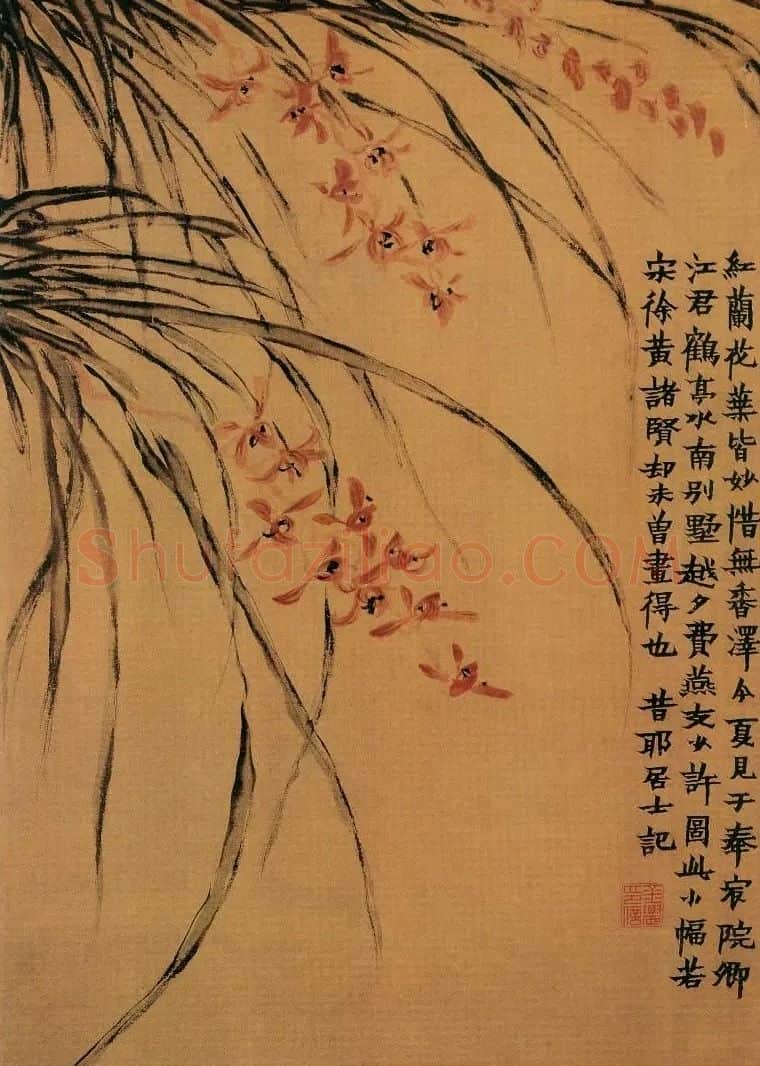 紅蘭花葉皆妙惜無香澤今夏見于奉宸院卿
江君鶴亭水南別墅越夕費燕支少許圖此小幅若
宋徐黃諸賢却未曾畫得也 昔耶居士記
Shufaziliao.COM